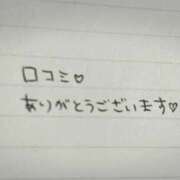 口コミ♡
ありがとうございます♡